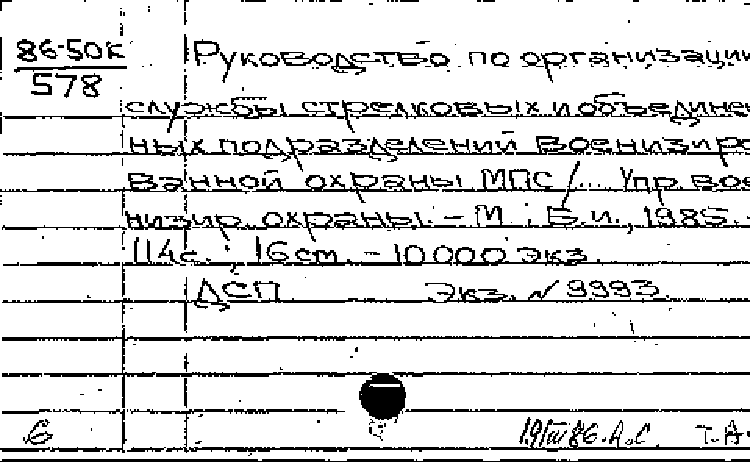 86-50к Руководство по организации
578
службы стрелковых и объединен
ных подразделений Военизиро
ванной охраны МПС / ... Упр. вое
низир. охраны. - М.: Б.и., 1985. -
114 с.; 16 см. - 10 000 экз.
ДСП Экз. № 9993.
6 19/III 86. А.С. Т.